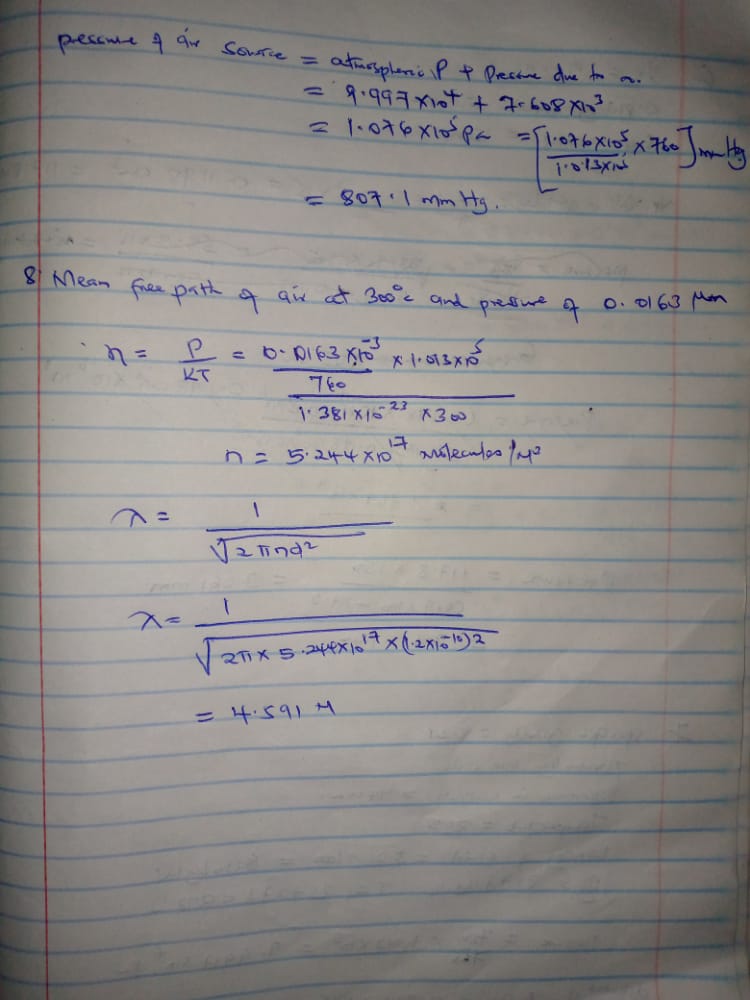 pressure of air source = atmospheric P + Pressure due to
= 9.997×10⁴ + 7.608×10³
= 1.076×10⁵ Pa = [1.076×10⁵/1.013×10⁵ ×760] mmHg
= 807.1 mmHg.
8 Mean free path of air at 300°c and pressure of 0.0163 μm
n = P/KT = 0.0163×10⁻³/760 × 1.013×10⁵ / 1.381×10⁻²³ ×300
n = 5.244×10¹⁷ molecules/M³
λ = 1/√2πnd²
λ = 1/√2π× 5.244×10¹⁷ ×(1.2×10⁻¹⁰)2
= 4.591 M